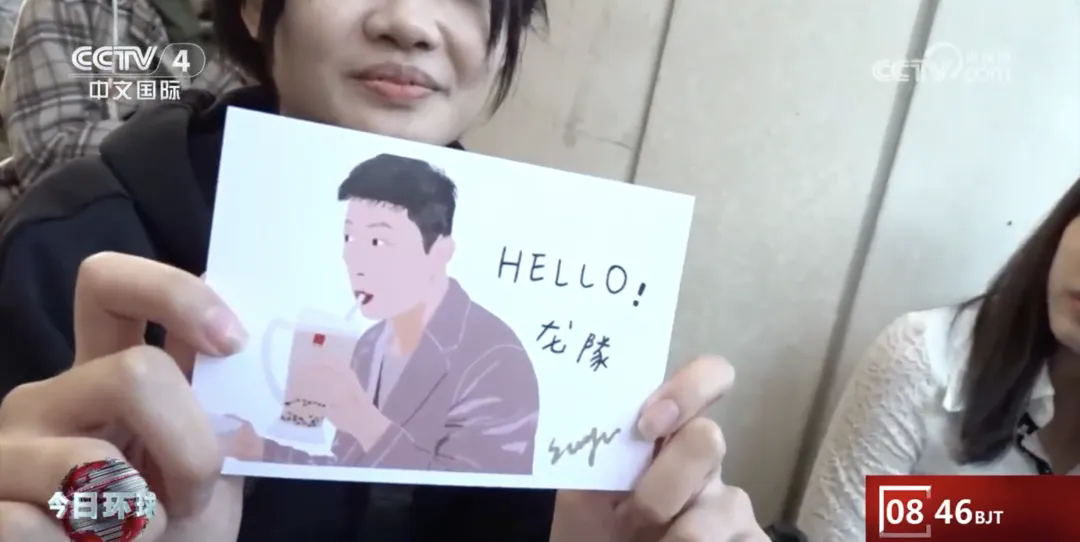 CCTV 4
中文国际
CCTV
.com
HELLO!
龙隊
今日环球
08 46 BJT